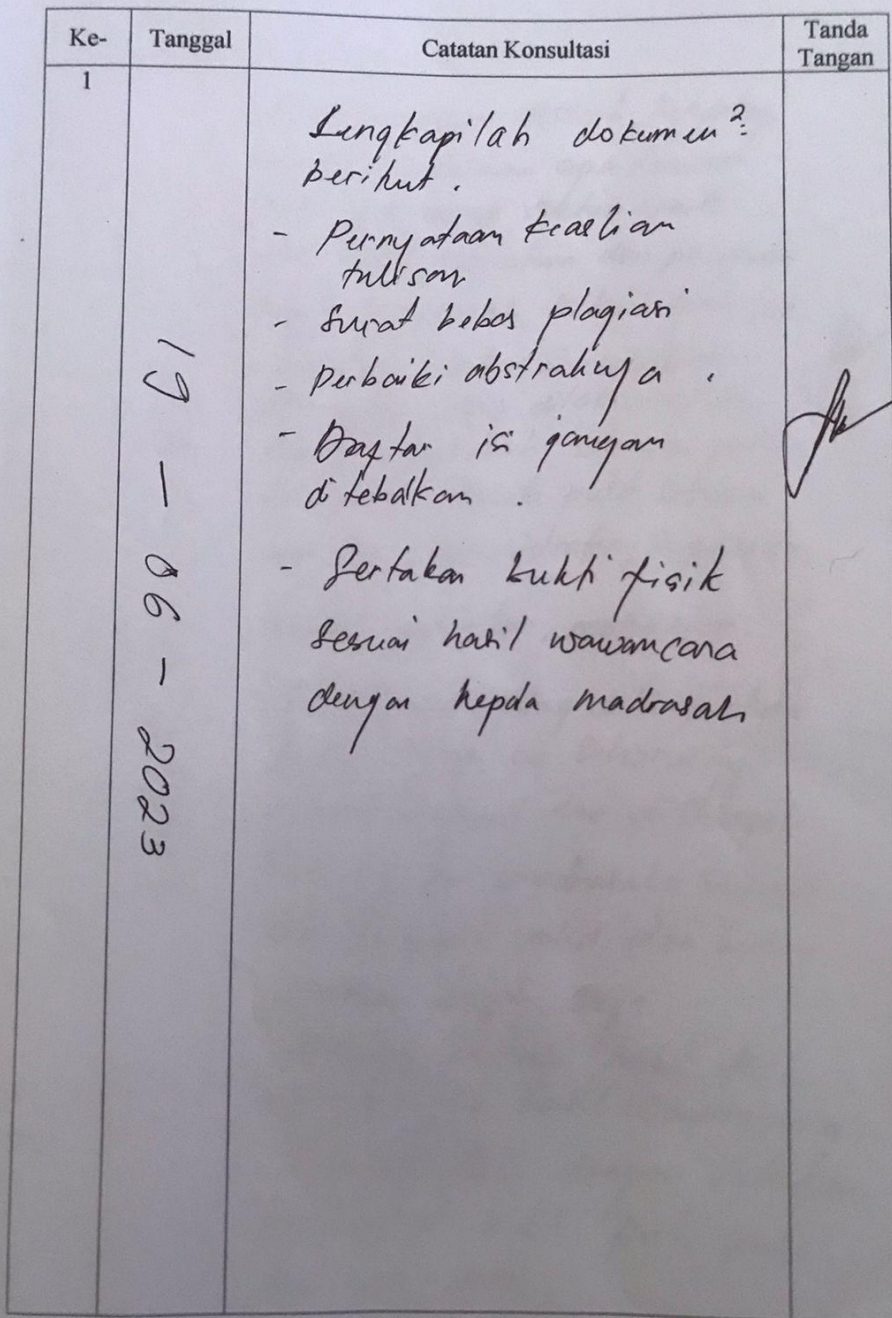 Ke- Tanggal Catatan Konsultasi Tanda Tangan
1
19 - 06 - 2023
Lengkapilah dokumen²:
berikut.
- Pernyataan keaslian
tulisan
- Surat bebas plagiasi
- Perbaiki abstraknya.
- Daftar isi jangan
di tebalkan.
- Sertakan bukti fisik
sesuai hasil wawancara
dengan kepala madrasah